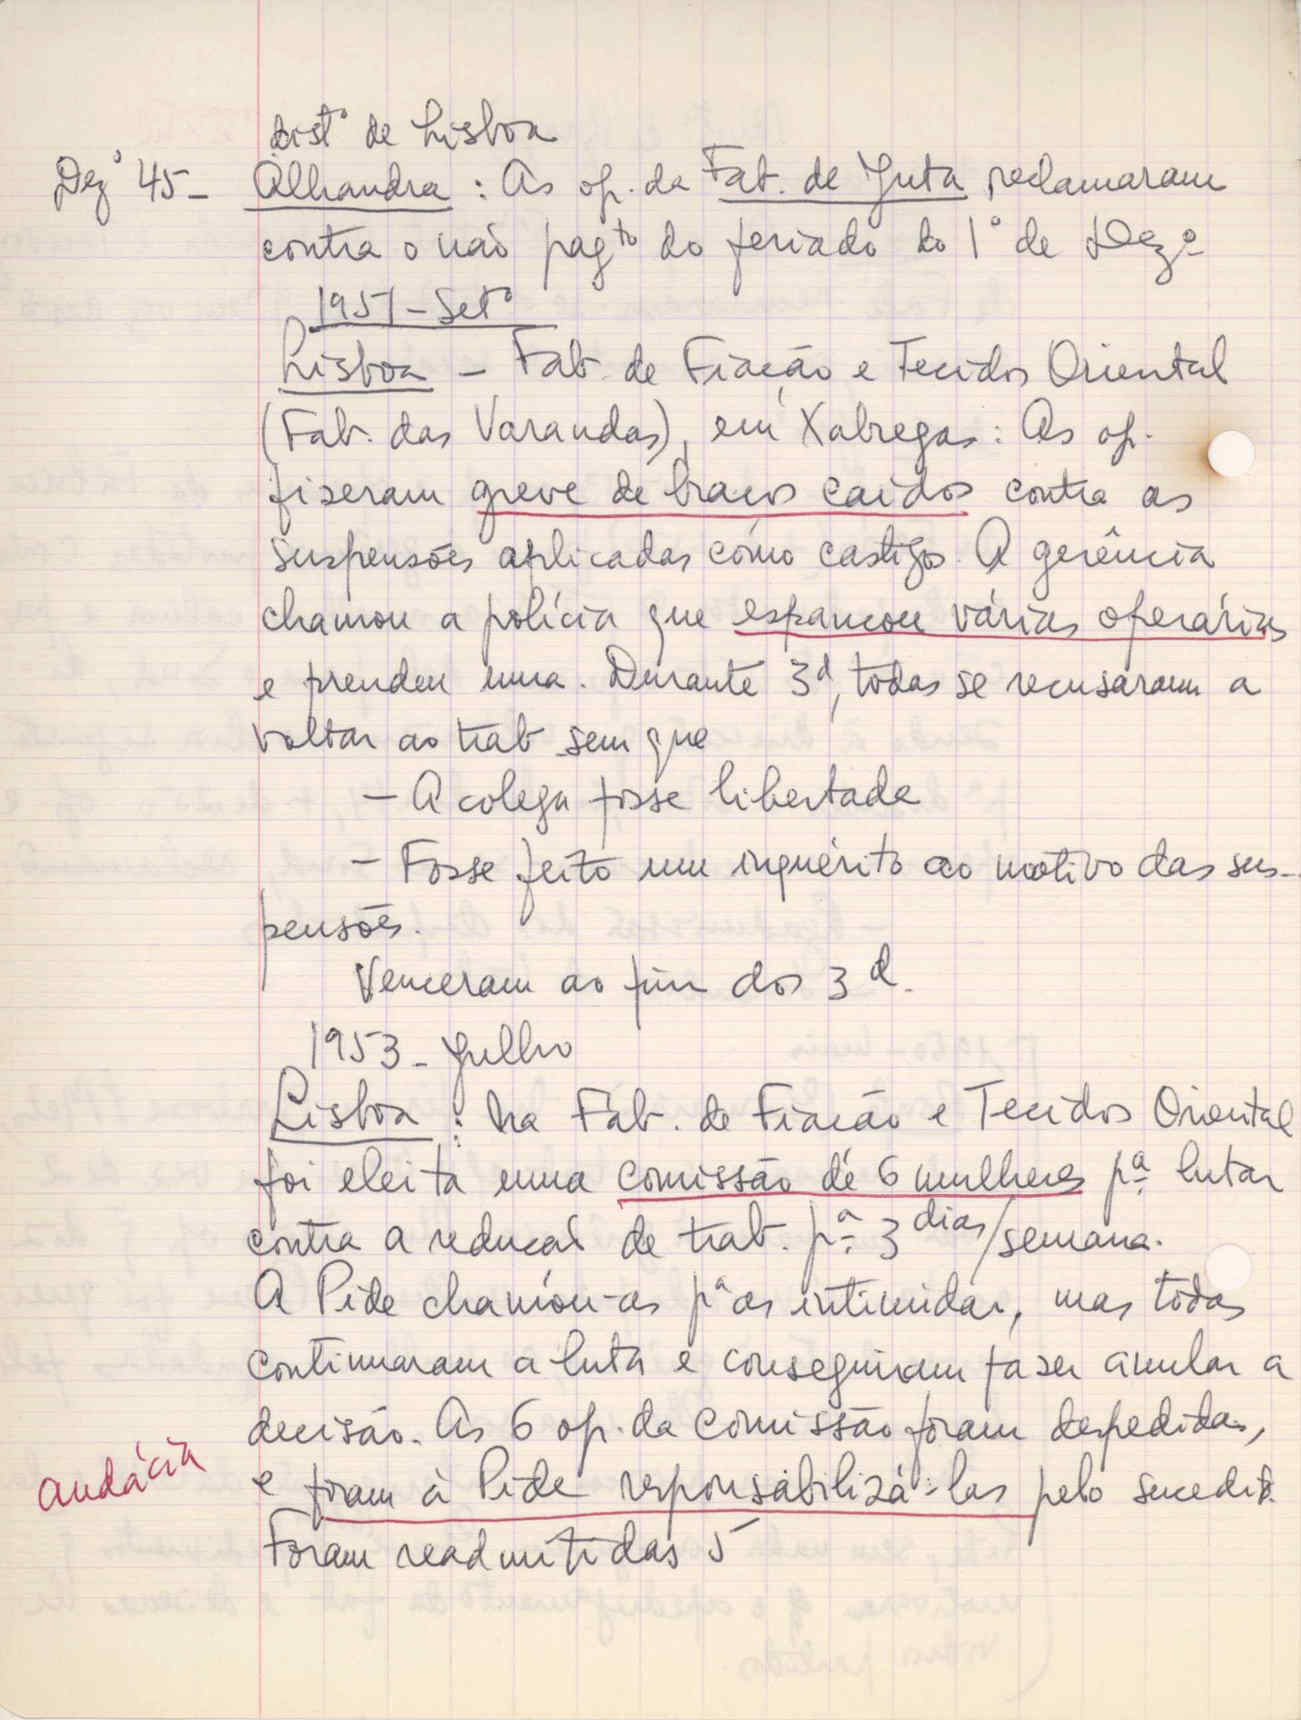 Distº de Lisboa
Dezº 45 - Alhandra : As op. da Fab. de Juta reclamaram
contra o não pagto do feriado do 1º de Dezº
1951 - Setº
Lisboa - Fab. de Fiação e Tecidos Oriental
(Fab. das Varandas), em Xabregas: As op.
fizeram greve de braços caídos contra as
suspensões aplicadas como castigo. A gerência
chamou a polícia que espancou várias operárias
e prendeu uma. Durante 3d, todas se recusaram a
voltar ao trab sem que
- A colega fosse libertada
- Fosse feito um inquérito ao motivo das sus-
pensões.
Venceram ao fim dos 3 d.
1953 - Julho
Lisboa : Na Fab. de Fiação e Tecidos Oriental
foi eleita uma comissão de 6 mulheres pª lutar
contra a redução de trab. pª 3 dias/semana.
A Pide chamou-as pª as intimidar, mas todas
continuaram a luta e conseguiram fazer anular a
decisão. As 6 op. da comissão foram despedidas,
audácia e foram à Pide responsabilizá-las pelo sucedido.
Foram readmitidas 5